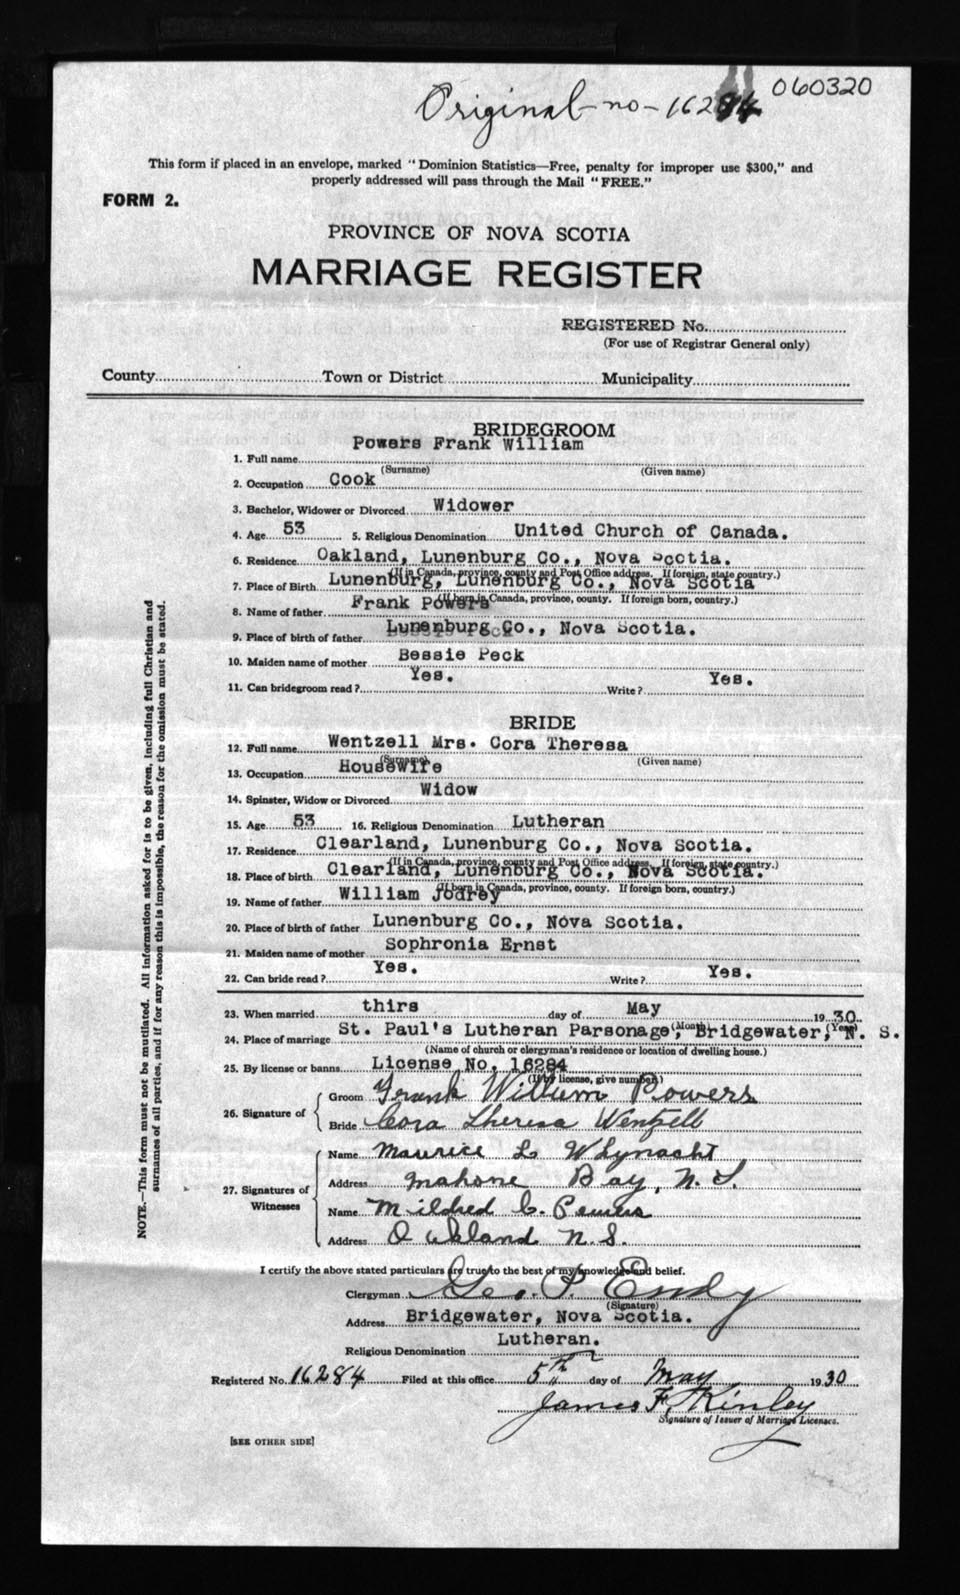 Original - no - 16284 060320
This form if placed in an envelope, marked "Dominion Statistics—Free, penalty for improper use $300," and
properly addressed will pass through the Mail "FREE."
FORM 2.
PROVINCE OF NOVA SCOTIA
MARRIAGE REGISTER
REGISTERED No.
(For use of Registrar General only)
County Town or District Municipality
BRIDEGROOM
1. Full name Powers Frank William
(Surname) (Given name)
2. Occupation Cook
3. Bachelor, Widower or Divorced Widower
4. Age 53 5. Religious Denomination United Church of Canada.
6. Residence Oakland, Lunenburg Co., Nova Scotia.
(If in Canada, province, county and Post Office address. If foreign, state country.)
7. Place of Birth Lunenburg, Lunenburg Co., Nova Scotia
(If born in Canada, province, county. If foreign born, country.)
8. Name of father Frank Powers
9. Place of birth of father Lunenburg Co., Nova Scotia.
10. Maiden name of mother Bessie Peck
11. Can bridegroom read? Yes. Write? Yes.
BRIDE
12. Full name Wentzell Mrs. Cora Theresa
(Surname) (Given name)
13. Occupation Housewife
14. Spinster, Widow or Divorced Widow
15. Age 53 16. Religious Denomination Lutheran
17. Residence Clearland, Lunenburg Co., Nova Scotia.
(If in Canada, province, county and Post Office address. If foreign, state country.)
18. Place of birth Clearland, Lunenburg Co., Nova Scotia.
(If born in Canada, province, county. If foreign born, country.)
19. Name of father William Jodrey
20. Place of birth of father Lunenburg Co., Nova Scotia.
21. Maiden name of mother Sophronia Ernst
22. Can bride read? Yes. Write? Yes.
23. When married thirs day of May 1930.
(Month) (Year)
24. Place of marriage St. Paul's Lutheran Parsonage, Bridgewater, N. S.
(Name of church or clergyman's residence or location of dwelling house.)
25. By license or banns License No. 16284
(If by license, give number.)
26. Signature of Groom Frank William Powers
Bride Cora Theresa Wentzell
27. Signatures of Witnesses Name Maurice L Whynacht
Address Mahone Bay, N.S.
Name Mildred C. Powers
Address Oakland N.S.
I certify the above stated particulars are true to the best of my knowledge and belief.
Clergyman Geo. P. Endy
(Signature)
Address Bridgewater, Nova Scotia.
Religious Denomination Lutheran.
Registered No. 16284 Filed at this office 5th day of May 1930
James F. Kinley
Signature of Issuer of Marriage Licenses.
[SEE OTHER SIDE]
NOTE.—This form must not be mutilated. All information asked for is to be given, including full Christian and
surnames of all parties, and if for any reason this is impossible, the reason for the omission must be stated.